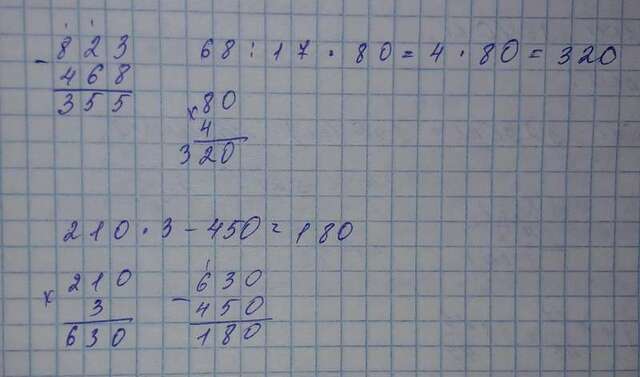 - 823
468
355
68 : 17 · 80 = 4 · 80 = 320
x 80
4
320
210 · 3 - 450 = 180
x 210
3
630
- 630
450
180